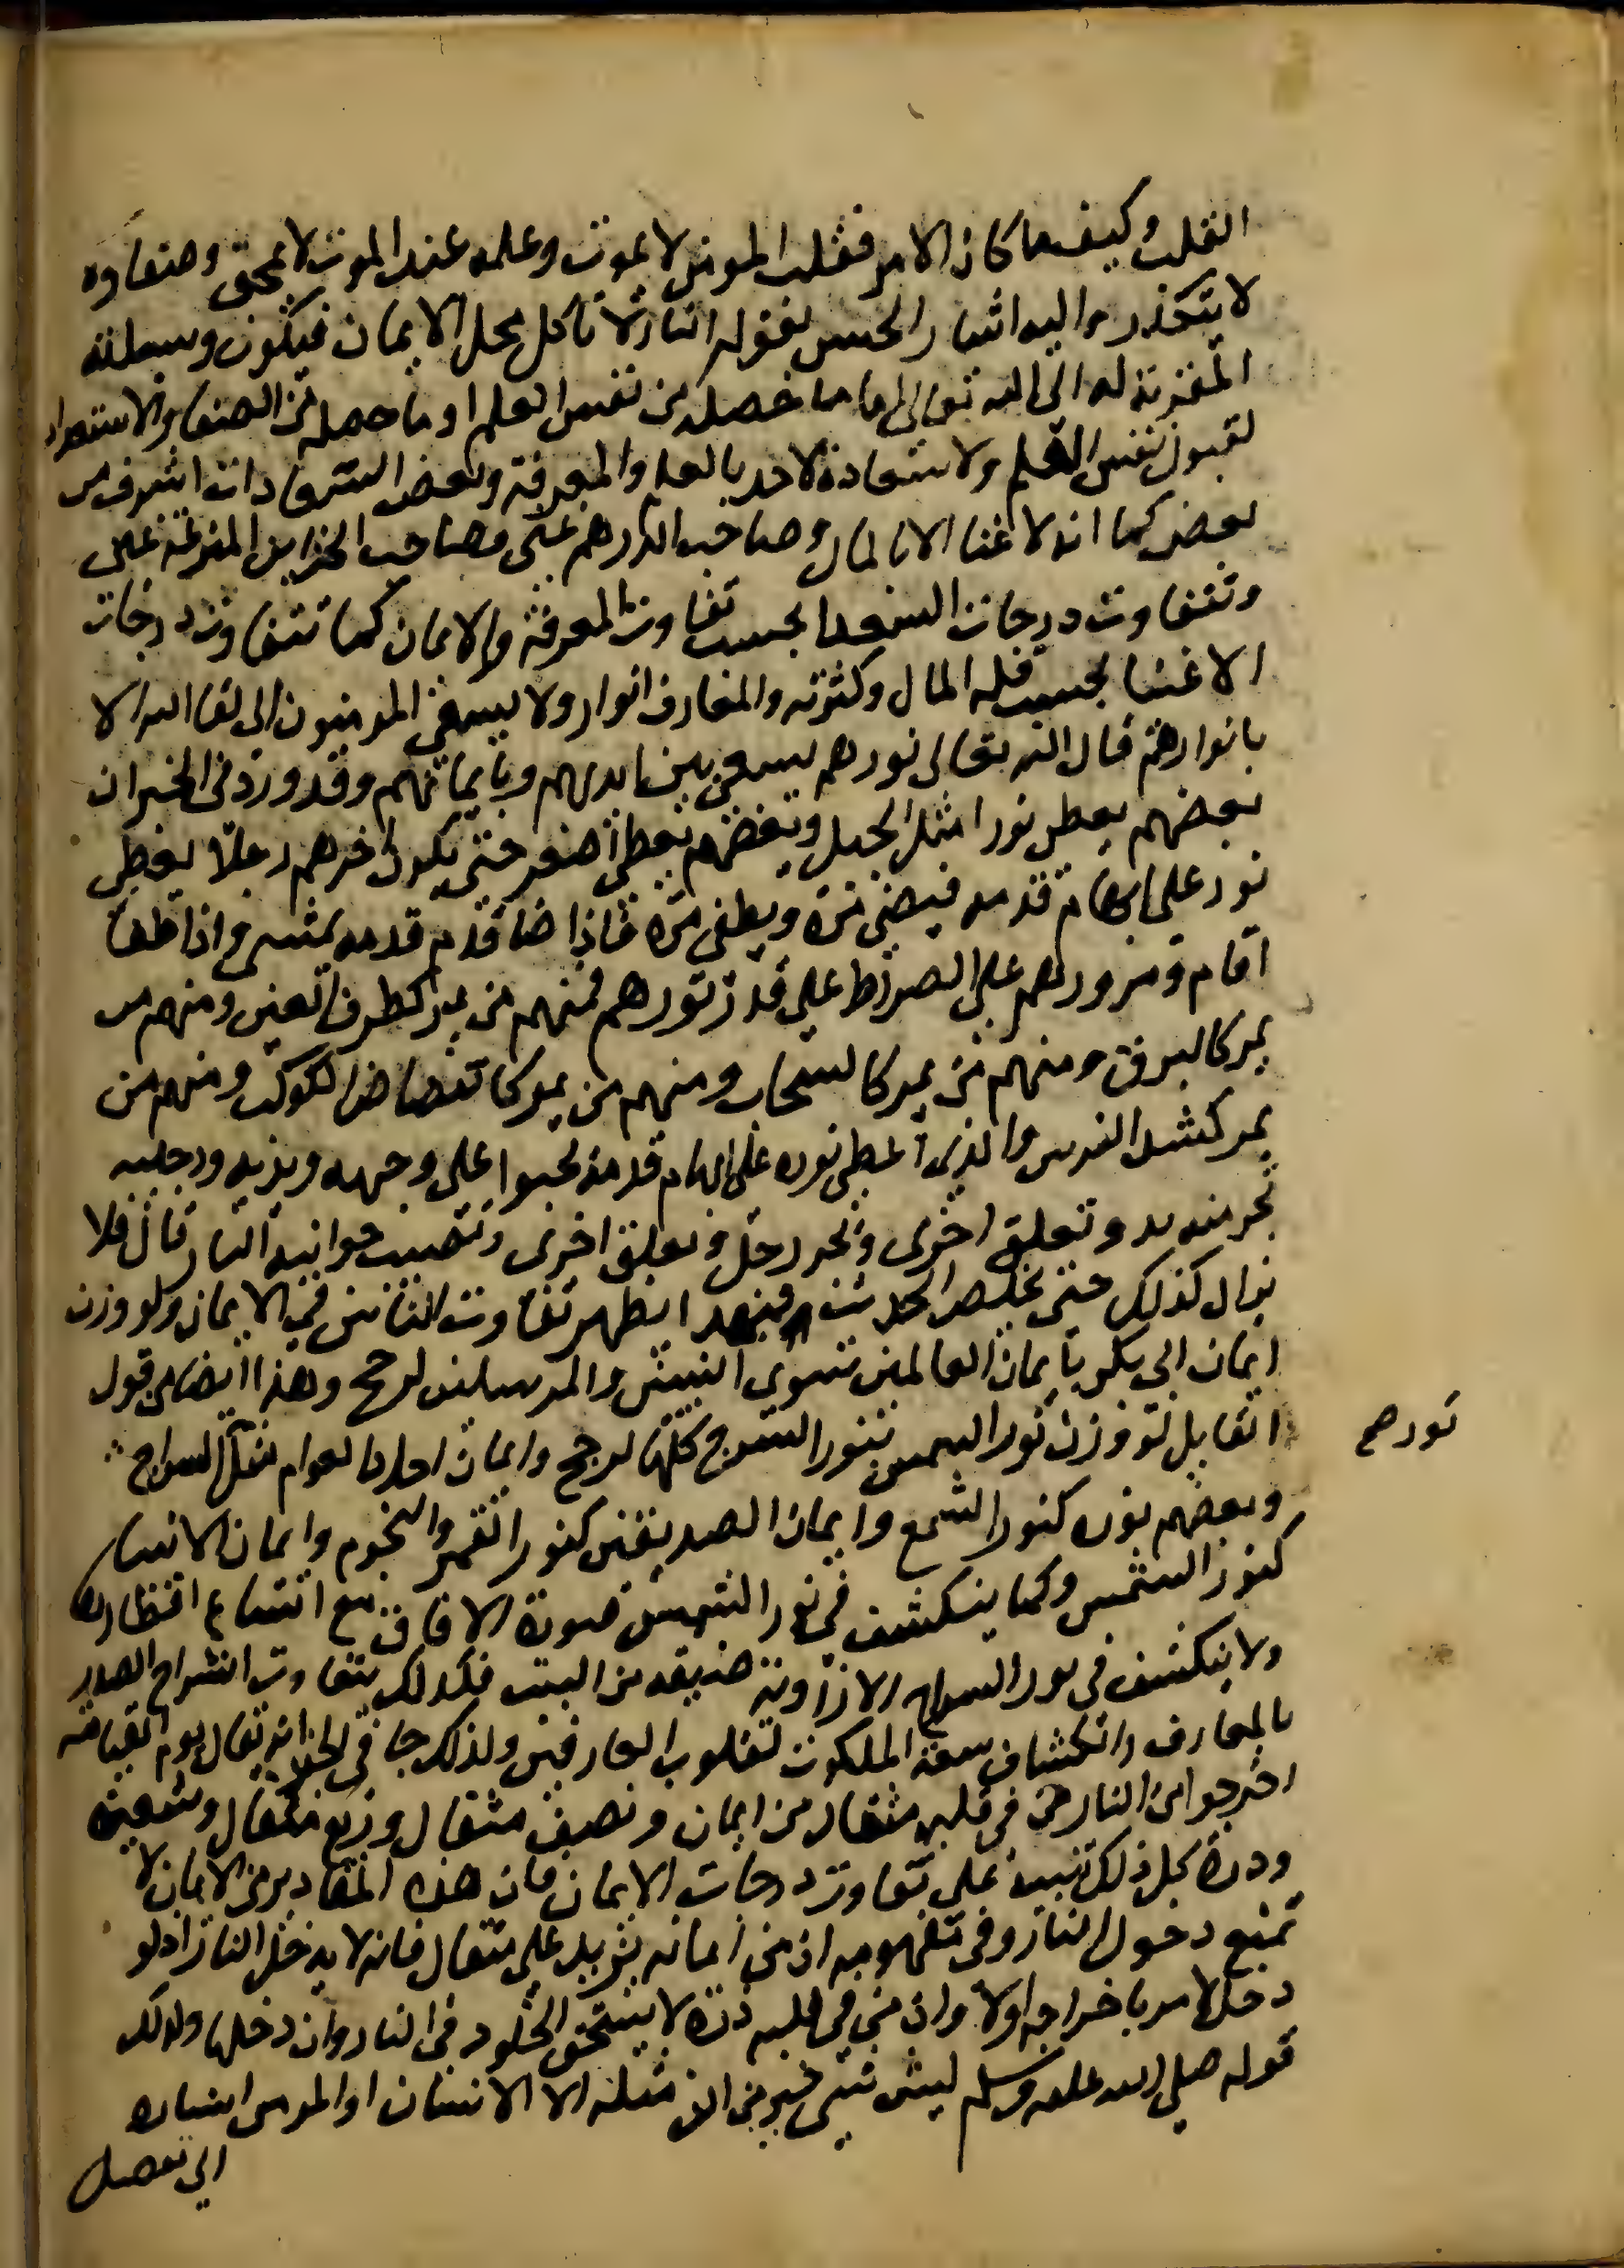 القلب وكيفما كان الامر فقلب المومن لا يموت وعلمه عند الموت لا يمحق وصفاوه
لا يتكدر واليه اشار الحسن بقوله التراب لا ياكل محل الايمان فيكون وسيلته
المقربة له الى الله تعالى اما ما حصله من نفس العلم او ما حصله من الصفا والاستعداد
لقبول نفس العلم ولا سعادة لاحد الا بالعلم والمعرفة وبعض السعادات اشرف من
بعض كما انه لا غنا الا بالمال وصاحب الدرهم غنى وصاحب الخزاين المترعه غنى
وتتفاوت درجات السعدا بحسب تفاوت المعرفة والايمان كما تتفاوت درجات
الاغنيا بحسب قلة المال وكثرته والمعارف انوار ولا يسعى المومنون الى لقا الله الا
بانوارهم قال الله تعالى نورهم يسعى بين ايديهم وبايمانهم وقد ورد فى الخبر ان
بعضهم يعطى نورا مثل الجبل وبعضهم يعطى اصغر حتى يكون اخرهم رجلا يعطى
نور على ابهام قدمه فيضى مرة ويطفى مرة فاذا ضا قدم قدمه فمشى واذا طفا
اقام ومرورهم على الصراط على قدر نورهم فمنهم من يمر كطرف العين ومنهم من
يمر كالبرق ومنهم من يمر كالسحاب ومنهم من يمر كانقضاض الكوكب ومنهم من
يمر كشد الفرس والذى اعطى نوره على ابهام قدمه يحبوا على وجهه ويديه ورجليه
تجر منه يد وتعلق اخرى وتجر رجل وتعلق اخرى وتصيب جوانبه النار قال فلا
يزال كذلك حتى يخلص الحديث فبهذا يظهر تفاوت الناس فى الايمان ولو وزن
ايمان ابى بكر بايمان العالمين سوى النبيين والمرسلين لرجح وهذا ايضا هى قول
القايل لو وزن نور الشمس بنور السرج كلها لرجح وايمان احاد العوام مثل السراج
نورهم
وبعضهم نوره كنور الشمع وايمان الصديقين كنور القمر والنجوم وايمان الانبيا
كنور الشمس وكما ينكشف فى نور الشمس صورة الافاق مع اتساع اقطارها
ولا ينكشف فى نور السراج الا زاوية ضيقه من البيت فكذلك يتفاوت انشراح الصدر
بالمعارف وانكشاف سعة الملكوت لقلوب العارفين ولذلك جا فى الخبر انه يقال يوم القيامة
اخرجوا من النار من فى قلبه مثقال من ايمان ونصف مثقال وربع مثقال وشعيرة
وذرة كل ذلك تنبيه على تفاوت درجات الايمان وان هذه المقادير من الايمان لا
تمنع دخول النار وفى مفهومه ان من ايمانه يزيد على مثقال فانه لا يدخل النار اذ لو
دخل لامر باخراجه اولا وان من فى قلبه ذرة لا يستحق الخلود فى النار وان دخلها وكذلك
قوله صلى الله عليه وسلم ليس شى خير من الف مثله الا الانسان او المومن اشاره
الى تفضيل